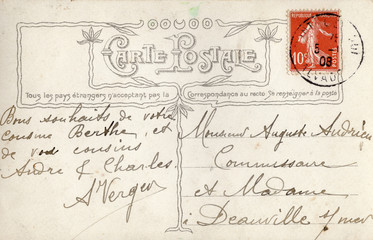 CARTE POSTALE
Tous les pays étrangers n'acceptant pas la Correspondance au recto Se renseigner à la poste
REPUBLIQUE
10c
5
08
Bons souhaits de votre
cousine Berthe, et
de vos cousins
Andre & Charles
A Verger
Monsieur Auguste Andrieu
Commissaire
et Madame
à Deauville s/mer